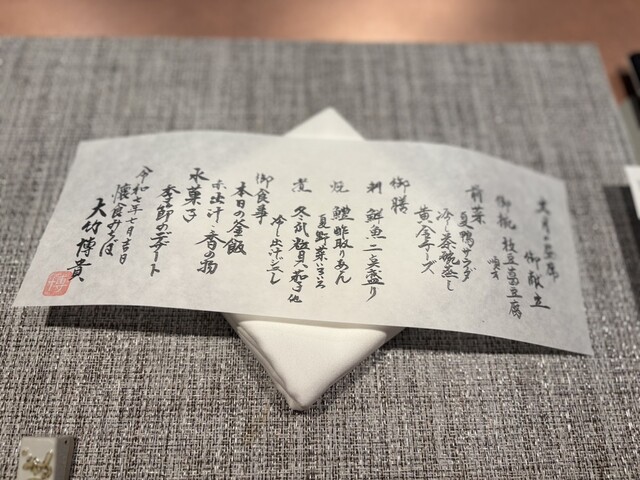 文月の昼席
御献立
御椀 枝立葛豆腐
前菜
夏鴨サラダ
冷し茶碗蒸し
黄金チーズ
御膳
刺 鮮魚二点盛り
焼 鱧酢取りあん
夏野菜いろいろ
煮 冬瓜 鮑貝 茄子 他
冷し出汁ジュレ
御食事
本日の釜飯
赤出汁・香の物
水菓子
季節のデザート
令和七年七月吉日
懐食みちば
大竹博貴
博